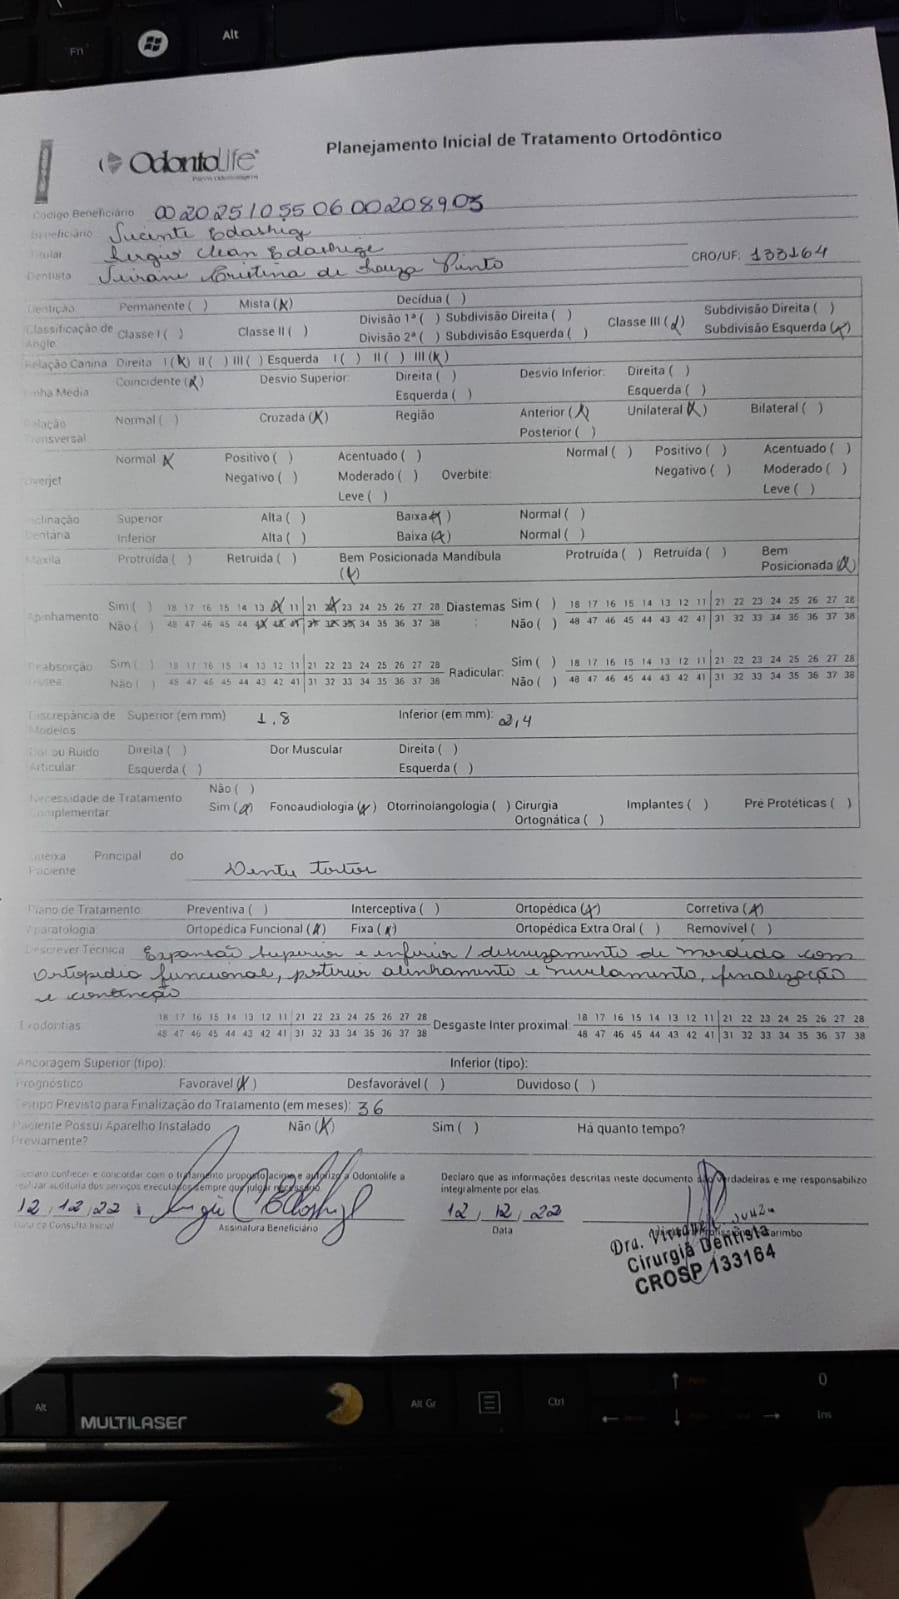 Fn
Alt
OdontoLife
Planejamento Inicial de Tratamento Ortodôntico
Código Beneficiário 00202510550600208903
Beneficiário
Titular
Dentista Cristina de Souza Pinto CRO/UF: 133164
Dentição Permanente ( ) Mista (X) Decídua ( )
Classificação de Angle Classe I ( ) Classe II ( ) Divisão 1ª ( ) Subdivisão Direita ( ) Classe III (X) Subdivisão Direita ( )
Divisão 2ª ( ) Subdivisão Esquerda ( ) Subdivisão Esquerda (X)
Relação Canina Direita I (X) II ( ) III ( ) Esquerda I ( ) II ( ) III (X)
Linha Média Coincidente (X) Desvio Superior: Direita ( ) Desvio Inferior: Direita ( )
Esquerda ( ) Esquerda ( )
Relação Transversal Normal ( ) Cruzada (X) Região Anterior (X) Unilateral (X) Bilateral ( )
Posterior ( )
Overjet Normal X Positivo ( ) Acentuado ( ) Normal ( ) Positivo ( ) Acentuado ( )
Negativo ( ) Moderado ( ) Overbite: Negativo ( ) Moderado ( )
Leve ( ) Leve ( )
Inclinação Dentária Superior Alta ( ) Baixa (X) Normal ( )
Inferior Alta ( ) Baixa (X) Normal ( )
Maxila Protruída ( ) Retruida ( ) Bem Posicionada (X) Mandíbula Protruída ( ) Retruída ( ) Bem Posicionada (X)
Apinhamento Sim ( ) 18 17 16 15 14 13 11 21 23 24 25 26 27 28 Diastemas : Sim ( ) 18 17 16 15 14 13 12 11 21 22 23 24 25 26 27 28
Não ( ) 48 47 46 45 44 34 35 36 37 38 Não ( ) 48 47 46 45 44 43 42 41 31 32 33 34 35 36 37 38
Reabsorção Óssea Sim ( ) 18 17 16 15 14 13 12 11 21 22 23 24 25 26 27 28 Radicular: Sim ( ) 18 17 16 15 14 13 12 11 21 22 23 24 25 26 27 28
Não ( ) 48 47 46 45 44 43 42 41 31 32 33 34 35 36 37 38 Não ( ) 48 47 46 45 44 43 42 41 31 32 33 34 35 36 37 38
Discrepância de Modelos Superior (em mm) 1,8 Inferior (em mm): 2,4
Dor ou Ruído Articular Direita ( ) Dor Muscular Direita ( )
Esquerda ( ) Esquerda ( )
Necessidade de Tratamento Complementar Não ( )
Sim (X) Fonoaudiologia (X) Otorrinolangologia ( ) Cirurgia Ortognática ( ) Implantes ( ) Pré Protéticas ( )
Queixa Principal do Paciente Dentes tortos
Plano de Tratamento Preventiva ( ) Interceptiva ( ) Ortopédica (X) Corretiva (X)
Aparatologia: Ortopédica Funcional (X) Fixa (X) Ortopédica Extra Oral ( ) Removível ( )
Descrever Técnica Expansão superior e inferior / descruzamento de mordida com
ortopedia funcional, posterior alinhamento e nivelamento, finalização
e contenção
Exodontias 18 17 16 15 14 13 12 11 21 22 23 24 25 26 27 28 Desgaste Inter proximal: 18 17 16 15 14 13 12 11 21 22 23 24 25 26 27 28
48 47 46 45 44 43 42 41 31 32 33 34 35 36 37 38 48 47 46 45 44 43 42 41 31 32 33 34 35 36 37 38
Ancoragem Superior (tipo): Inferior (tipo):
Prognóstico Favorável (X) Desfavorável ( ) Duvidoso ( )
Tempo Previsto para Finalização do Tratamento (em meses): 36
Paciente Possui Aparelho Instalado Previamente? Não (X) Sim ( ) Há quanto tempo?
Declaro conhecer e concordar com o tratamento proposto acima e autorizo a Odontolife a
realizar auditoria dos serviços executados sempre que julgar necessário.
Declaro que as informações descritas neste documento são verdadeiras e me responsabilizo
integralmente por elas
12, 12, 22
Data da Consulta Inicial
Assinatura Beneficiário
12, 12, 22
Data
Carimbo
Dra.
Cirurgiã Dentista
CROSP 133164
Alt
MULTILASER
Alt Gr
Ctrl
0
Ins